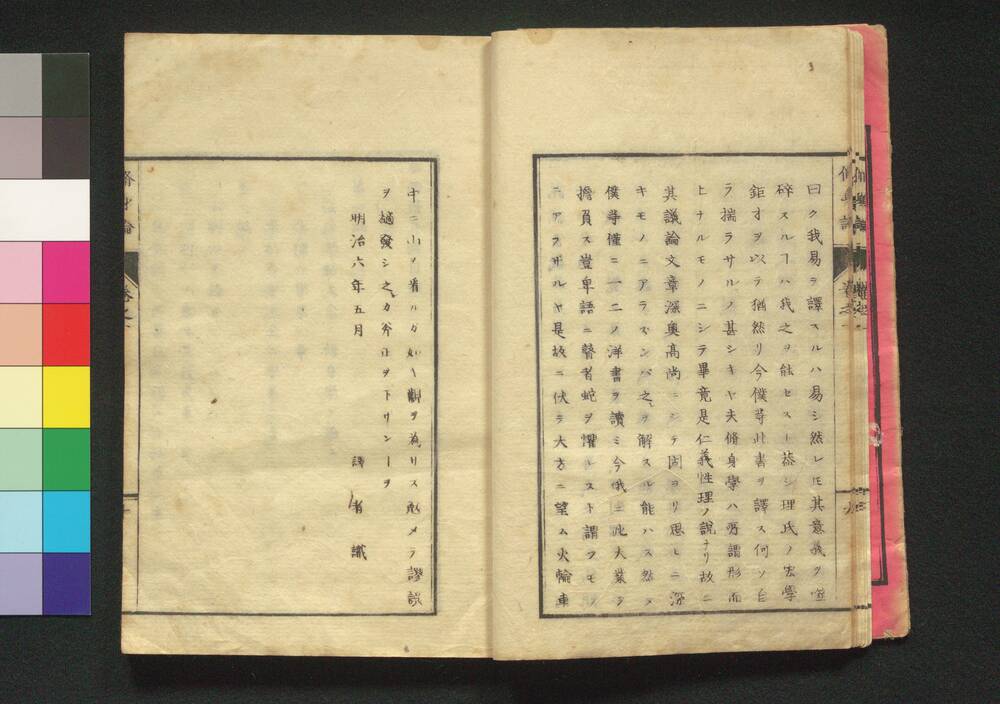 曰ク我易ヲ譯スルハ易シ然レ𪜈其意義ヲ
碎スルヿハ我之ヲ能セスト蓋シ理氏ノ宏學
鉅才ヲ以テ猶然リ今僕等此書ヲ譯ス何ソ自
ラ揣ラサルノ甚シキヤ夫脩身學ハ所謂形而
上ナルモノニシテ畢竟是仁義性理ノ説ナリ故ニ
其議論文章深奧高尚ニシテ固ヨリ思ヒニ深
キモノニアラズンバ之ヲ解スル能ハス然ルニ
僕等僅ニ一二ノ洋書ヲ讀ミ今俄ニ此大業ヲ
擔負ス豈卑語ニ瞽者蛇ヲ懼レスト謂フモノ
ニアラザルヤ是故ニ伏テ大方ニ望ム火輪車
中ニ山ノ看ハガ如ク觀ヲ為リス求メテ謬誤
ヲ擿發シ之カ斧正ヲ下サンヿヲ
明治六年五月
譯者 識
脩身論
卷之一